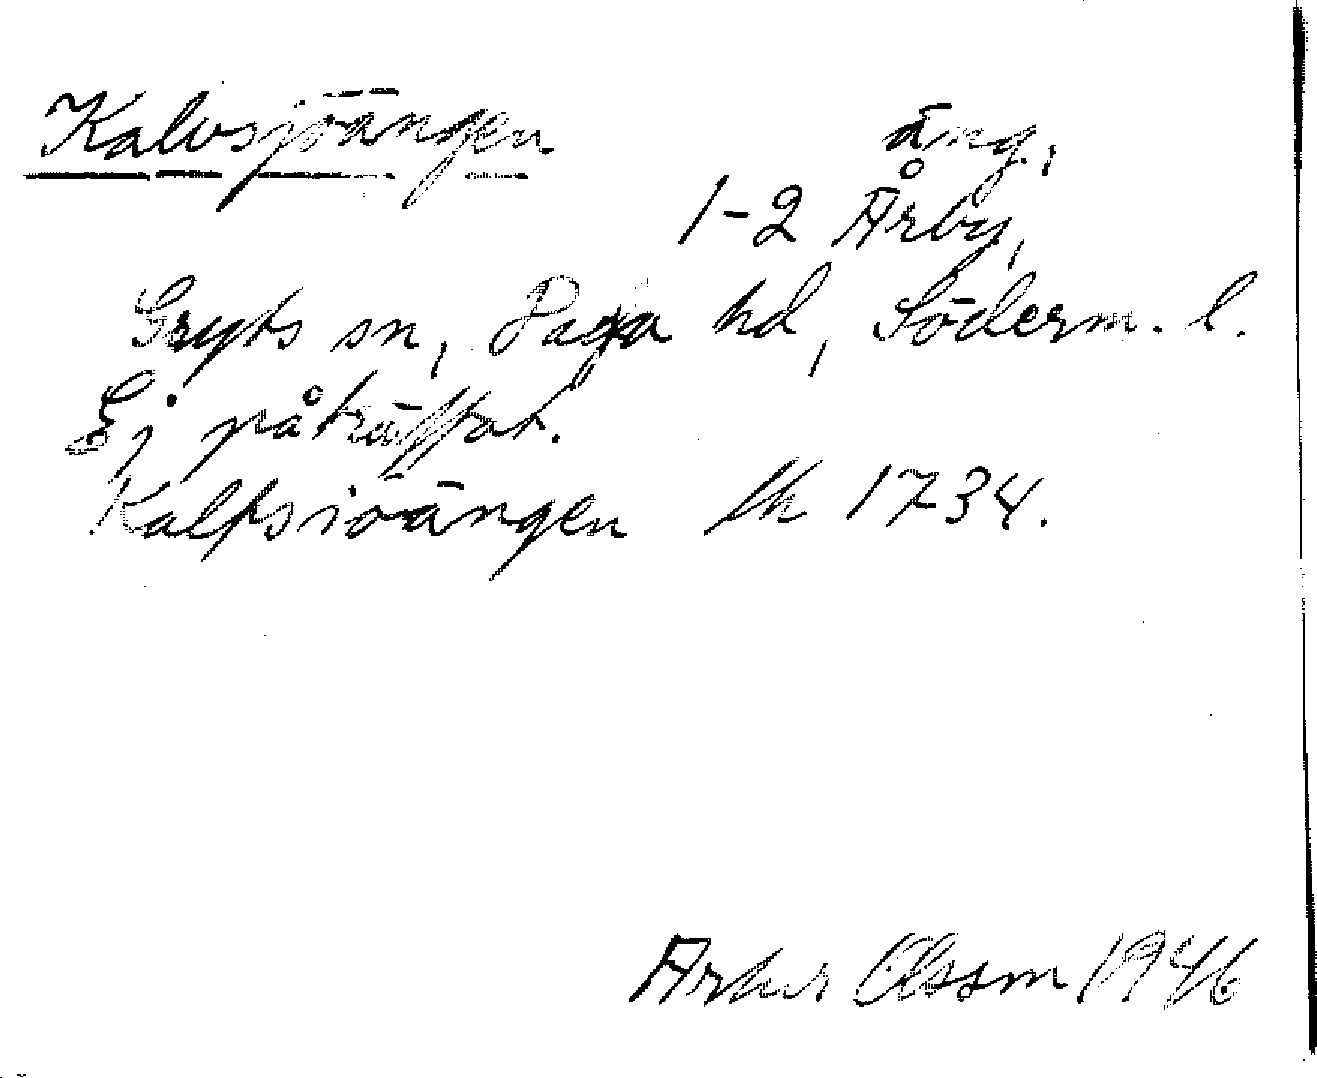 Kalvsjöängen äng,
1-2 Årby,
Gryts sn, Daga hd, Söderm. l.
Ej påträffat.
Kalfsiöängen lh 1734.
Artur Olsson 1946